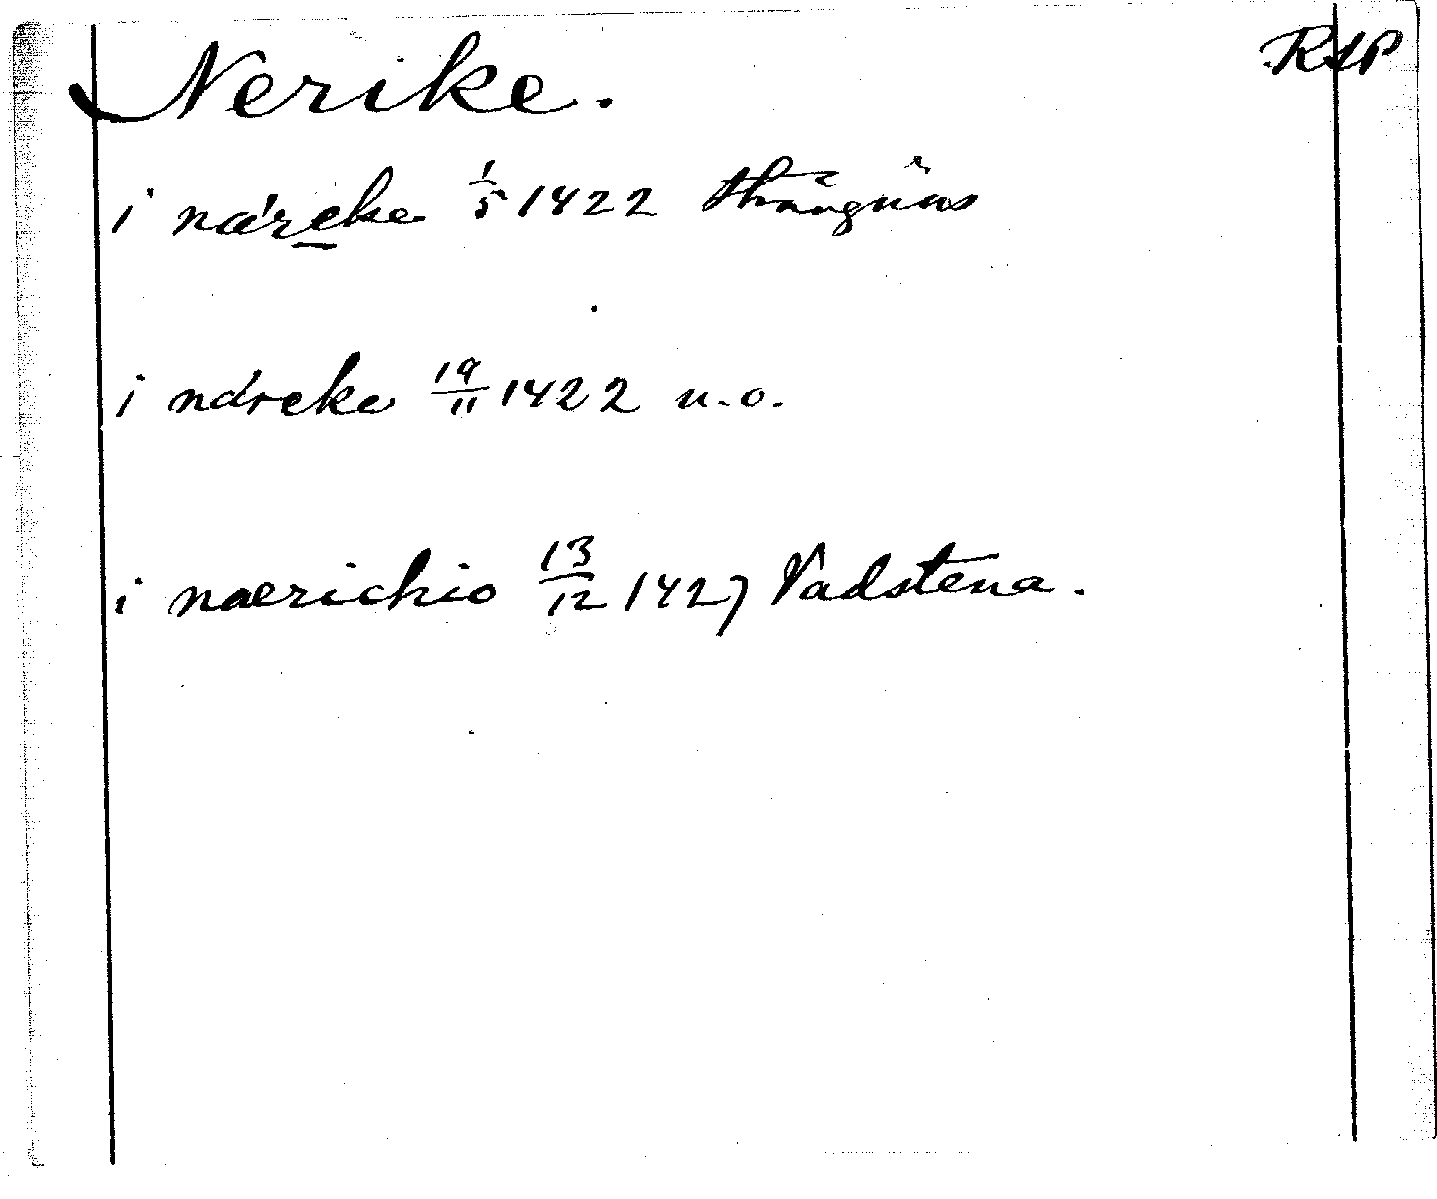 Nerike. RAP
i näreke 1/5 1422 Strängnäs
i náreke 19/11 1422 u.o.
i naerichio 13/12 1427 Vadstena.